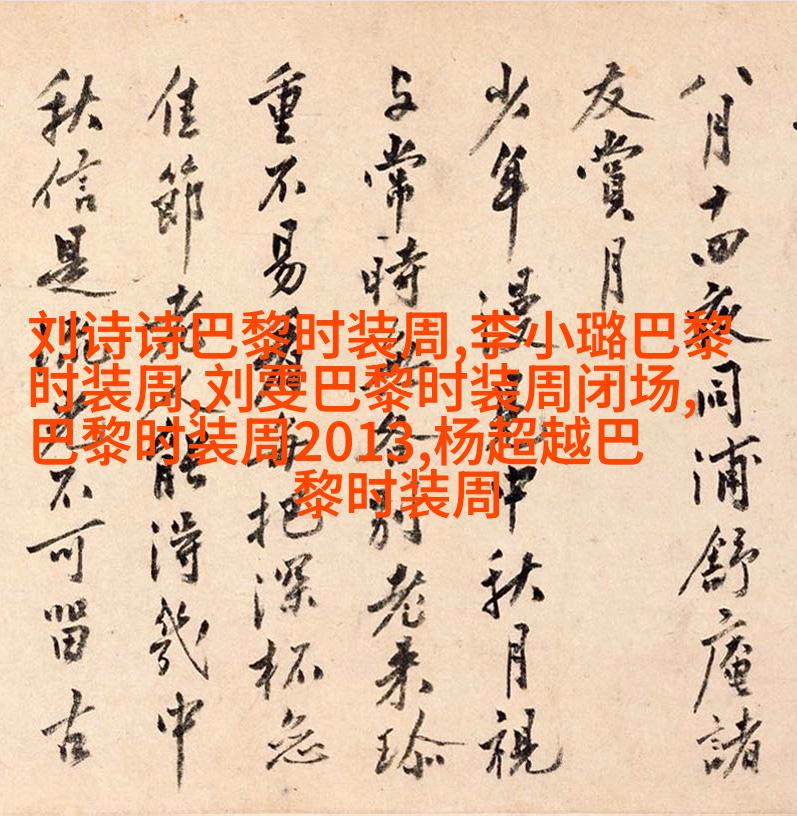 八月十四夜同浦舒庵諸
友賞月
少年漫中秋月視
与常時各別老来珍
重不易把深杯
佳節老人能得幾中
秋信是流光不可留古
刘诗诗巴黎时装周,李小璐巴黎
时装周,刘雯巴黎时装周闭场,
巴黎时装周2013,杨超越巴
黎时装周